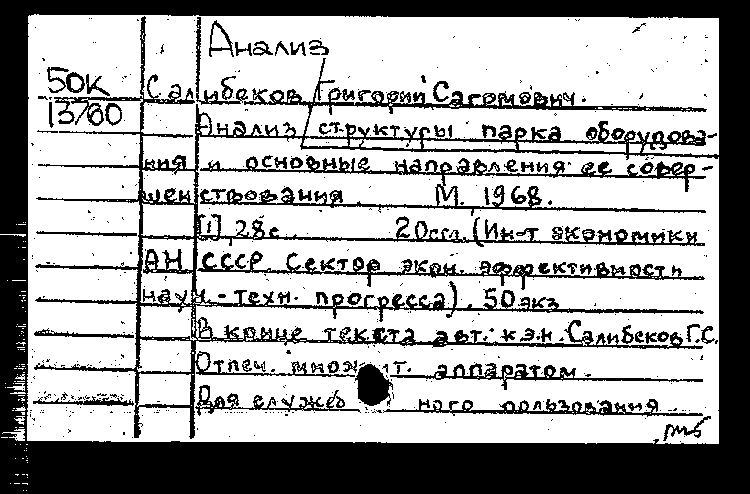 Анализ
50К
13/60
Салибеков Григорий Сагомович.
Анализ структуры парка оборудова-
ния и основные направления ее совер-
шенствования. М. 1968.
[1], 28 с. 20 см. (Ин-т экономики
АН СССР Сектор экон. эффективности
науч.-техн. прогресса). 50 экз
В конце текста авт.: к.э.н. Салибеков Г.С.
Отпеч. множ. ит. аппаратом.
Для служеб ного пользования